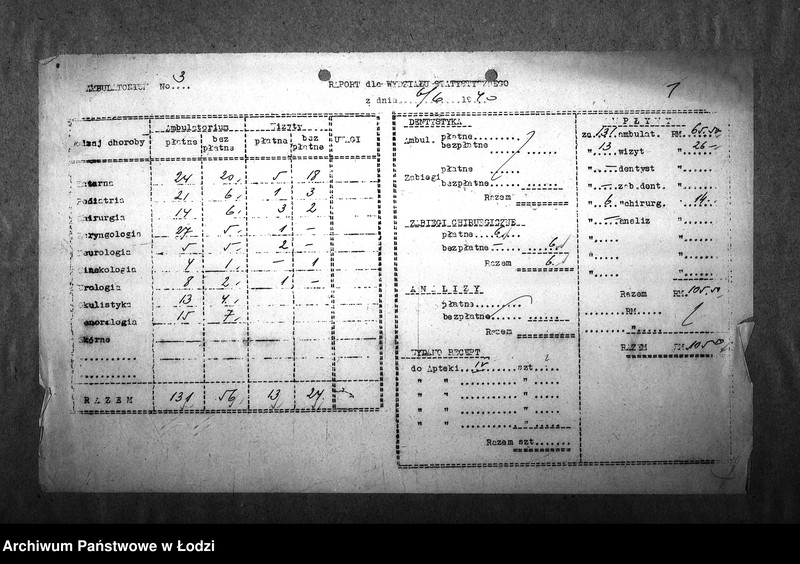 AMBULATORIUM No 3....
RAPORT dla WYDZIAŁU STATYSTYCZNEGO
z dnia 6/6 1940
1
Rodzaj choroby Ambulatorium Wizyty UWAGI
płatne bez płatne płatne bez płatne
Interna 24 20 5 18
Pediatria 21 6 1 3
Chirurgia 14 6 3 2
Laryngologia 27 5 1 -
Neurologia 5 5 2 -
Ginekologia 4 1 - 1
Urologia 8 2 1 -
Okulistyka 13 4
Wenerologia 15 7
Skórne
R A Z E M 131 56 13 24
DENTYSTYKA
Ambul. płatne........
bezpłatne
Zabiegi płatne
bezpłatne
Razem
ZABIEGI CHIRURGICZNE
płatne 6
bezpłatne - 6
Razem 6
A N A L I Z Y
płatne
bezpłatne
Razem
WYDANO RECEPT
do Apteki IV szt
" " " 
" " " 
" " " 
" " " 
Razem szt.
W P Ł Y W Y
za 131 ambulat. RM. 65.50
" 13 wizyt " 26 -
" - dentyst "
" - zab.dent. "
" 6 chirurg. " 14.
" - analiz "
" "
" "
Razem RM. 105.50
RM.
"
RAZEM RM. 105.50
Archiwum Państwowe w Łodzi